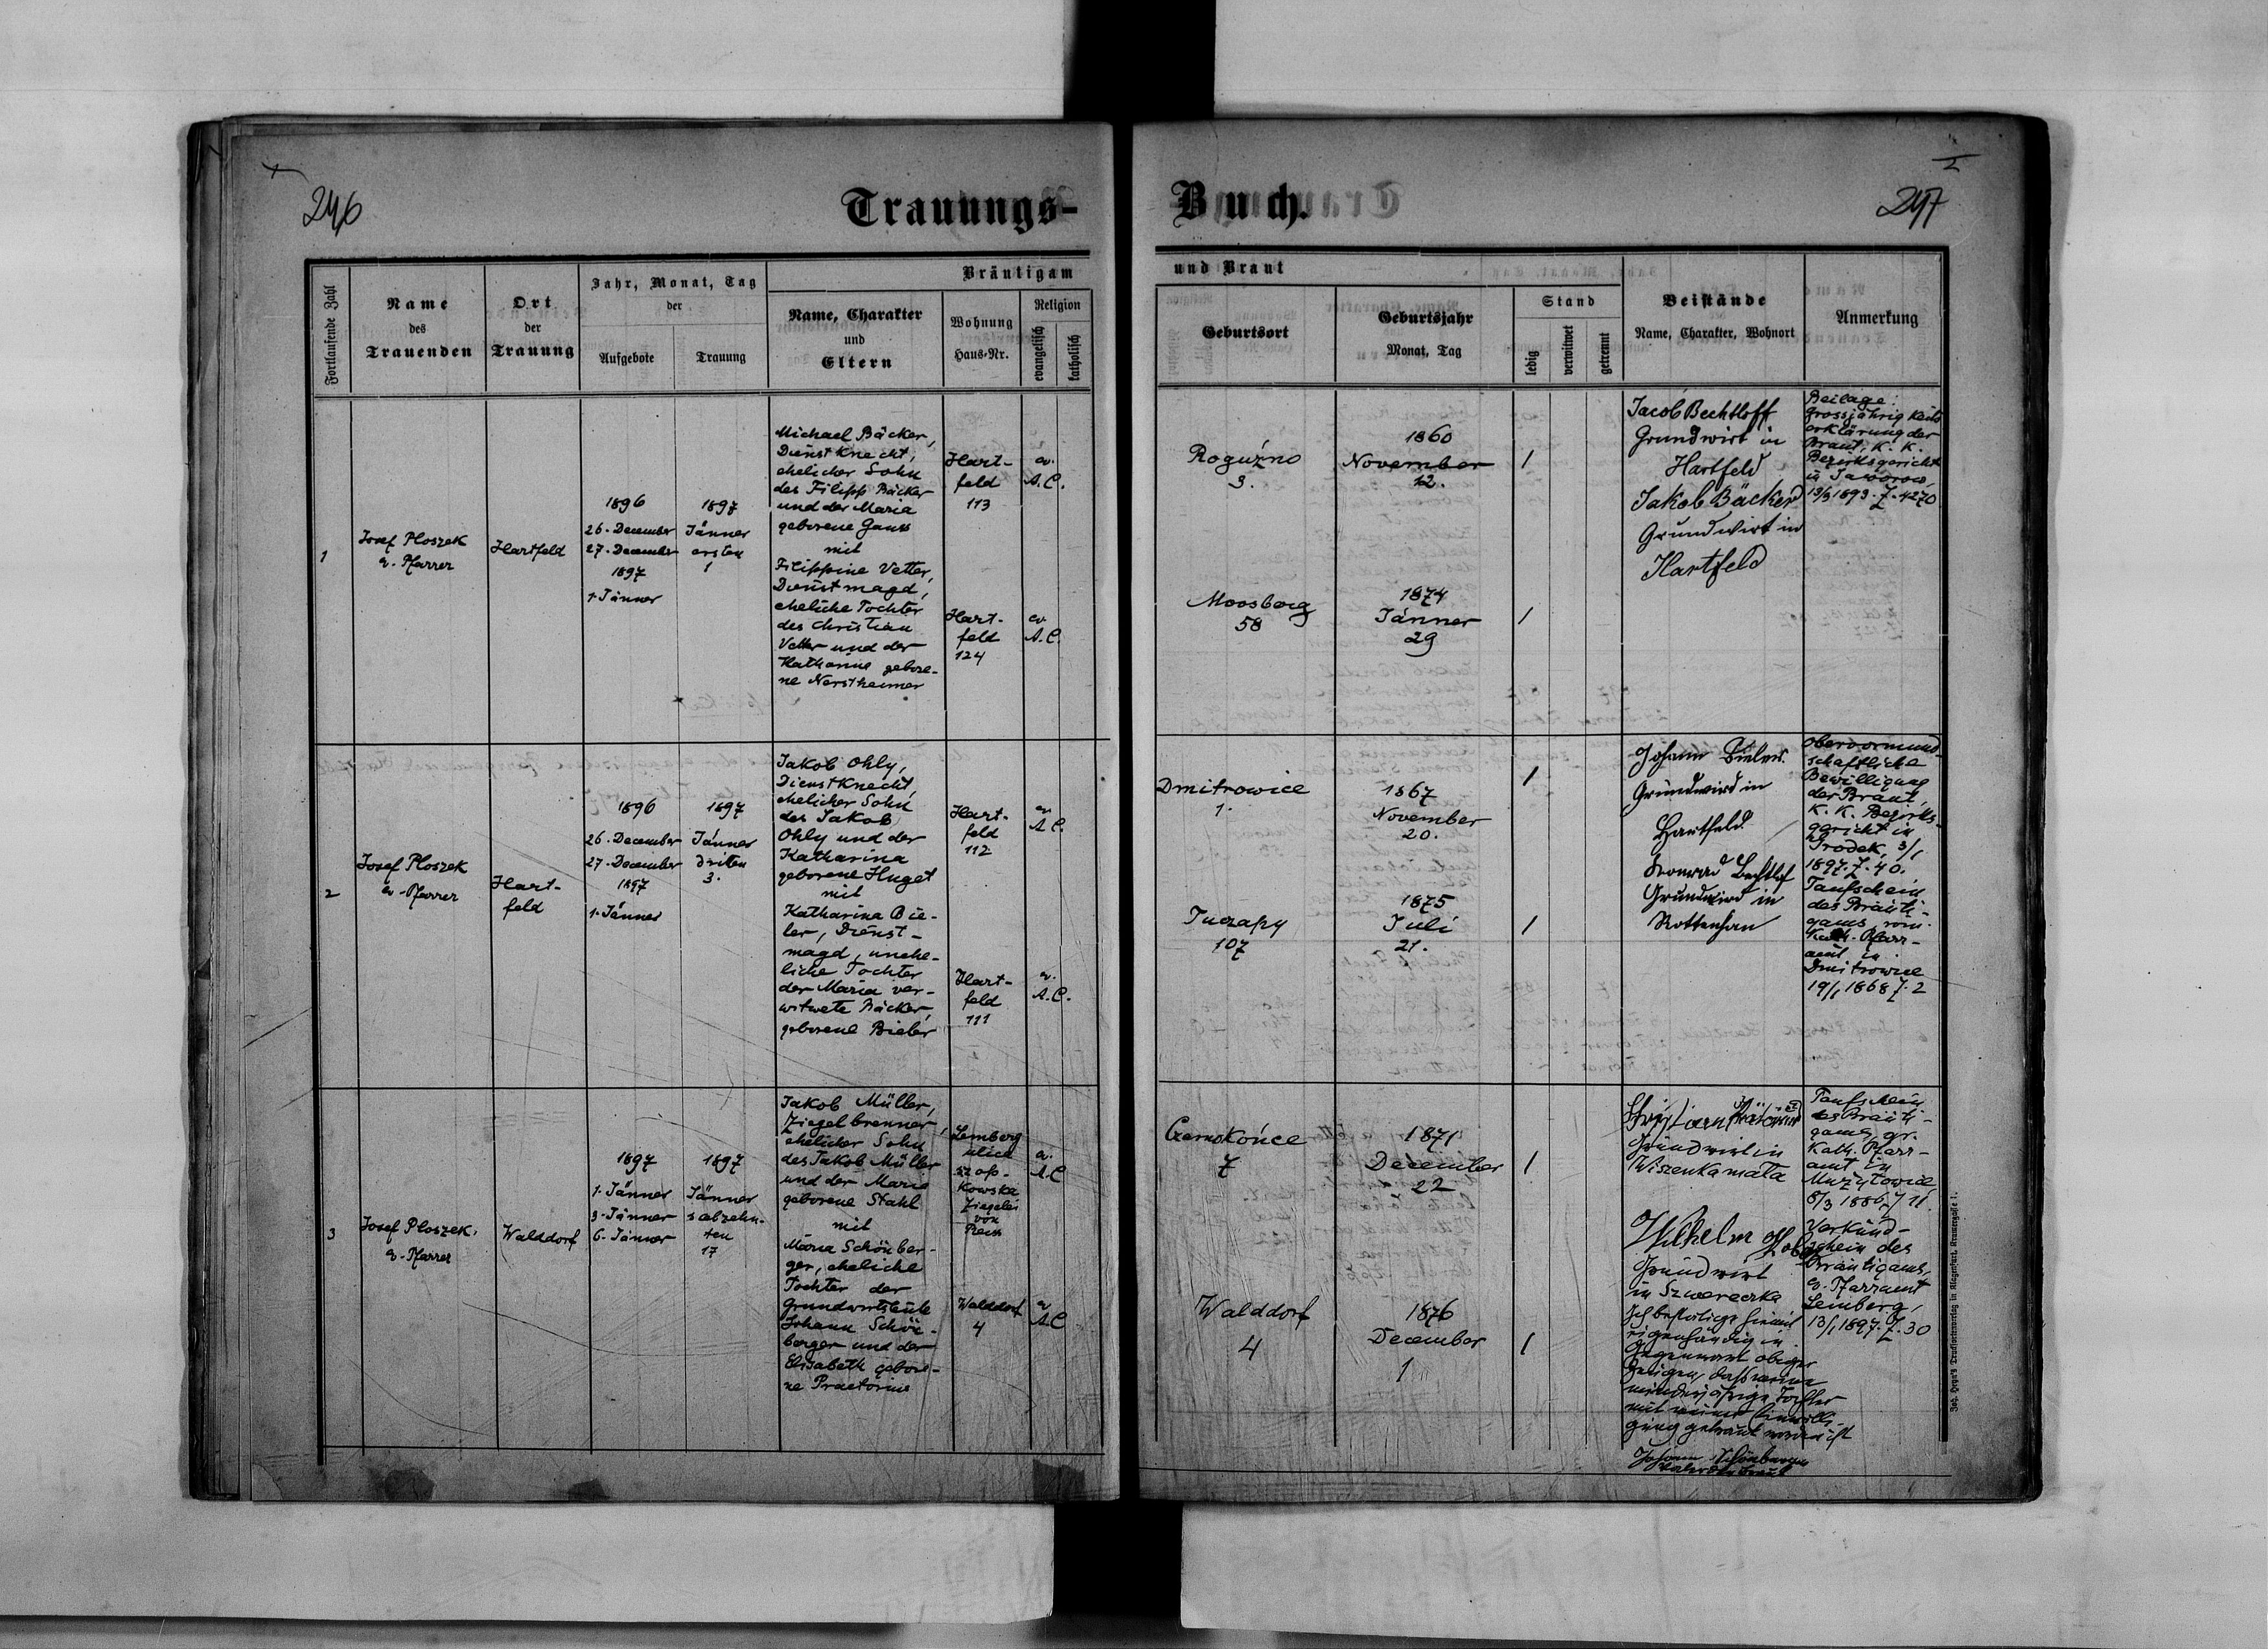 246
Trauungs-
Fortlaufende Zahl
Name
des
Trauenden
Ort
der
Trauung
Jahr, Monat, Tag
der
Aufgebote
Trauung
Bräutigam
Name, Charakter
und
Eltern
Wohnung
Haus-Nr.
Religion
evangelisch
katholisch
1
Josef Ploszek
ev. Pfarrer
Hartfeld
1896
26. December
27. December
1897
1. Jänner
1897
Jänner
ersten
1
Michael Bäcker,
Dienstknecht,
ehelicher Sohn
des Filipp Bäcker
und der Maria
geborene Gauss
mit
Filippine Vetter,
Dienstmagd,
eheliche Tochter
des Christian
Vetter und der
Katharine gebore-
ne Nerstheimer
Hart-
feld
113
ev.
A. C.
Hart-
feld
124
ev
A. C.
2
Josef Ploszek
ev. Pfarrer
Hart-
feld
1896
26. December
27. December
1897
1. Jänner
1897
Jänner
driten
3.
Jakob Ohly,
Dienstknecht,
ehelicher Sohn
des Jakob
Ohly und der
Katharina
geborene Huget
mit
Katharina Bie-
ler, Dienst-
magd, unehe-
liche Tochter
der Maria ver-
witwete Bäcker,
geborene Bieler
Hart-
feld
112
ev
A. C.
Hart-
feld
111
ev.
A. C.
3
Josef Ploszek,
ev. Pfarrer
Walddorf
1897
1. Jänner
3. Jänner
6. Jänner
1897
Jänner
siebzehn-
ten
17
Jakob Müller,
Ziegelbrenner,
ehelicher Sohn
des Jakob Müller
und der Maria
geborene Stahl
mit
Maria Schönber-
ger, eheliche
Tochter der
Grundwirtsleute
Johann Schön-
berger und der
Elisabeth gebore-
ne Praetorius
Lemberg
ulica
Szop-
kowska
Ziegelei
von
Reiss
ev.
A. C
Walddorf
4
ev
A. C
Buch.
I
247
und Braut
Geburtsort
Geburtsjahr
Monat, Tag
Stand
ledig
verwitwet
getrennt
Beistände
Name, Charakter, Wohnort
Anmerkung
Roguźno
3.
1860
November
12.
1
Moosberg
58
1874
Jänner
29
1
Jacob Bechtloff
Grundwirt in
Hartfeld
Jakob Bäcker
Grundwirt in
Hartfeld
Beilage:
Grossjährigkeits
erklärung der
Braut, K. K.
Bezirksgericht
in Jaworow,
13/9 1893. Z. 4270
Dmitrowice
1.
1867
November
20.
1
Tuczapy
107
1875
Juli
21.
1
Johann
Grundwird in
Hartfeld
Konrad Bechtlof
Grundwird in
Rottenhan
Obervormund-
schaftliche
Bewilligung
der Braut,
K. K. Bezirks-
gericht in
Grodek, 3/1
1897. Z. 40.
Taufschein
des Bräuti-
gams, röm.
Kath. Pfarr-
amt in
Dmitrowice
19/1 1868 Z. 2
Czernokońce
7
1871
December
22
1
Walddorf
4
1876
December
1
1
Christian
Grundwirt in
Wiszenka mała
Wilhelm
Grundwirt
in Szwereczka
Ich bestätige hiemit
eigenhändig in
Gegenwart obiger
Zeugen, dass meine
minderjährige Tochter
mit meiner Einwilli-
gung getraut worden ist
Johann Schönberger
Vater der Braut
Taufschein
des Bräuti-
gams, gr.
Kath. Pfarr-
amt in
Mużyłowice
8/3 1886, Z 11
Verkünd-
schein des
Bräutigams,
ev. Pfarramt
Lemberg,
13/1 1897. Z. 30